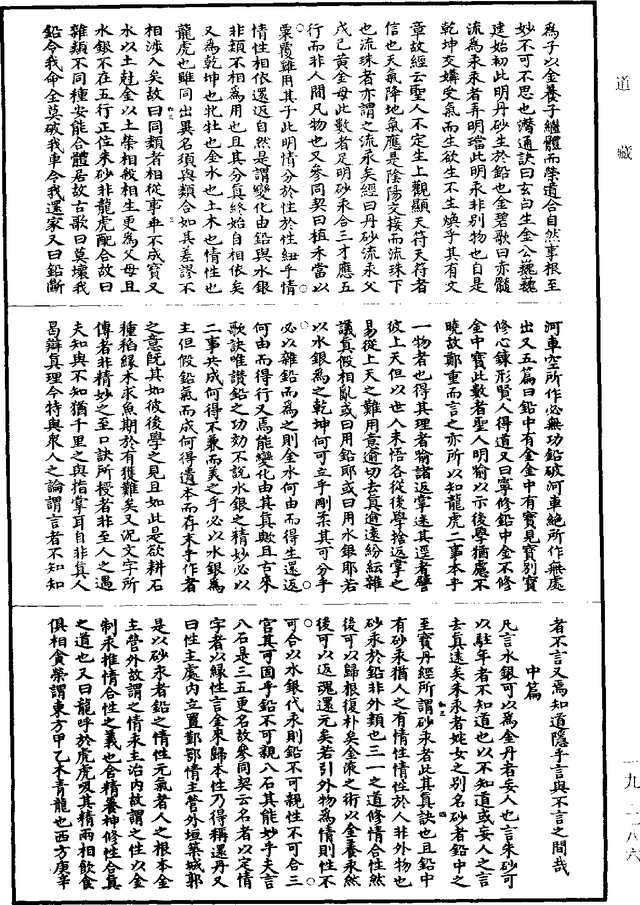 道藏
為子以金養子繼體而榮道合自然事根至
妙不可不思也潛通訣曰玄白生金公巍巍
建始初此明丹砂生於鉛也金碧歌曰赤髓
流為汞汞者弄明璫此明汞非別物也自是
乾坤交媾受氣而生欲生不生煥乎其有文
章故經云聖人不定生上觀顯天符天符者
信也天氣降地氣應是陰陽交接而流珠下
也流珠者亦謂之流汞矣經曰丹砂流汞父
戊己黃金母此數者足明砂汞合三才應五
行而非人間凡物也又參同契曰植禾當以
粟覆雞用其子此明情分於性於性紐乎情
情性相依還返自然是謂變化由鉛與水銀
非類不相為用也且其分真終始自相依矣
又為乾坤也牝牡也金水也土木也情性也
龍虎也雖同出異名須與類合如其差謬不
相涉入矣故曰同類者相從事乖不成寶又
水以土尅金以土榮相殺相生更為父母且
水銀不在五行正位朱砂非龍虎配合故曰
雜類不同種安能合體居故古歌曰莫壞我
鉛令我命全莫破我車令我還家又曰鉛斷
河車空所作必無功鉛破河車絕所作無處
出又五篇曰鉛中有金金中有寶見寶別寶
修心鍊形賢人得道又曰寧修鉛中金不修
金中寶此數者聖人明喻以示後學猶慮不
曉故鄭重而言之亦所以知龍虎二事本乎
一物者也得其理者喻諸返掌迷其逕者譬
彼上天但以世人未悟各從後學捨返掌之
易從上天之難用意逾切去真逾遠紛紜雜
議真假相亂或曰用鉛耶或曰用水銀耶若
以水銀為之乾坤何可立乎剛柔其可分乎
必以雜鉛而為之則金水何由而得生還返
何由而得行又焉能變化由其真歟且古來
歌訣唯讚鉛之功効不說水銀之精妙必以
二事共成何得不兼而美之乎必以水銀為
主但假鉛氣而成何得遺本而存末乎作者
之意旣其如彼後學之見且如此是欲耕石
種稻緣木求魚期於有獲難矣又況文字所
傳者非精妙之至口訣所授者非至人之遇
夫知與不知猶千里之與指掌耳自非真人
曷辯真理今特與衆人之論謂言者不知知
者不言又焉知道隱乎言與不言之間哉
中篇
凡言水銀可以為金丹者妄人也言朱砂可
以駐年者不知道也以不知道或妄人之言
去真遠矣朱汞者姹女之別名砂者鉛中之
至寶丹經所謂砂汞者此其真訣也且鉛中
有砂汞猶人之有情性情性於人非外物也
砂汞於鉛非外類也三一之道修情合性然
後可以歸根復朴矣金液之術以金養汞然
後可以返魂還元矣若引外物為情則性不
可合以水銀代汞則鉛不可親性不可合三
宮其可固乎鉛不可親八石其能妙乎夫言
八石是三五更名故參同契云名者以定情
字者以緣性言金來歸本性乃得稱還丹又
曰性主處內立置鄞鄂情主營外垣築城郭
是以砂汞者鉛之情性元氣者人之根本金
主營外故謂之情汞主治內故謂之性以金
制汞推情合性之義也含精養神修性合真
之道也又曰龍呼於虎虎吸其精兩相飲食
俱相貪榮謂東方甲乙木青龍也西方庚辛
一九-二八六